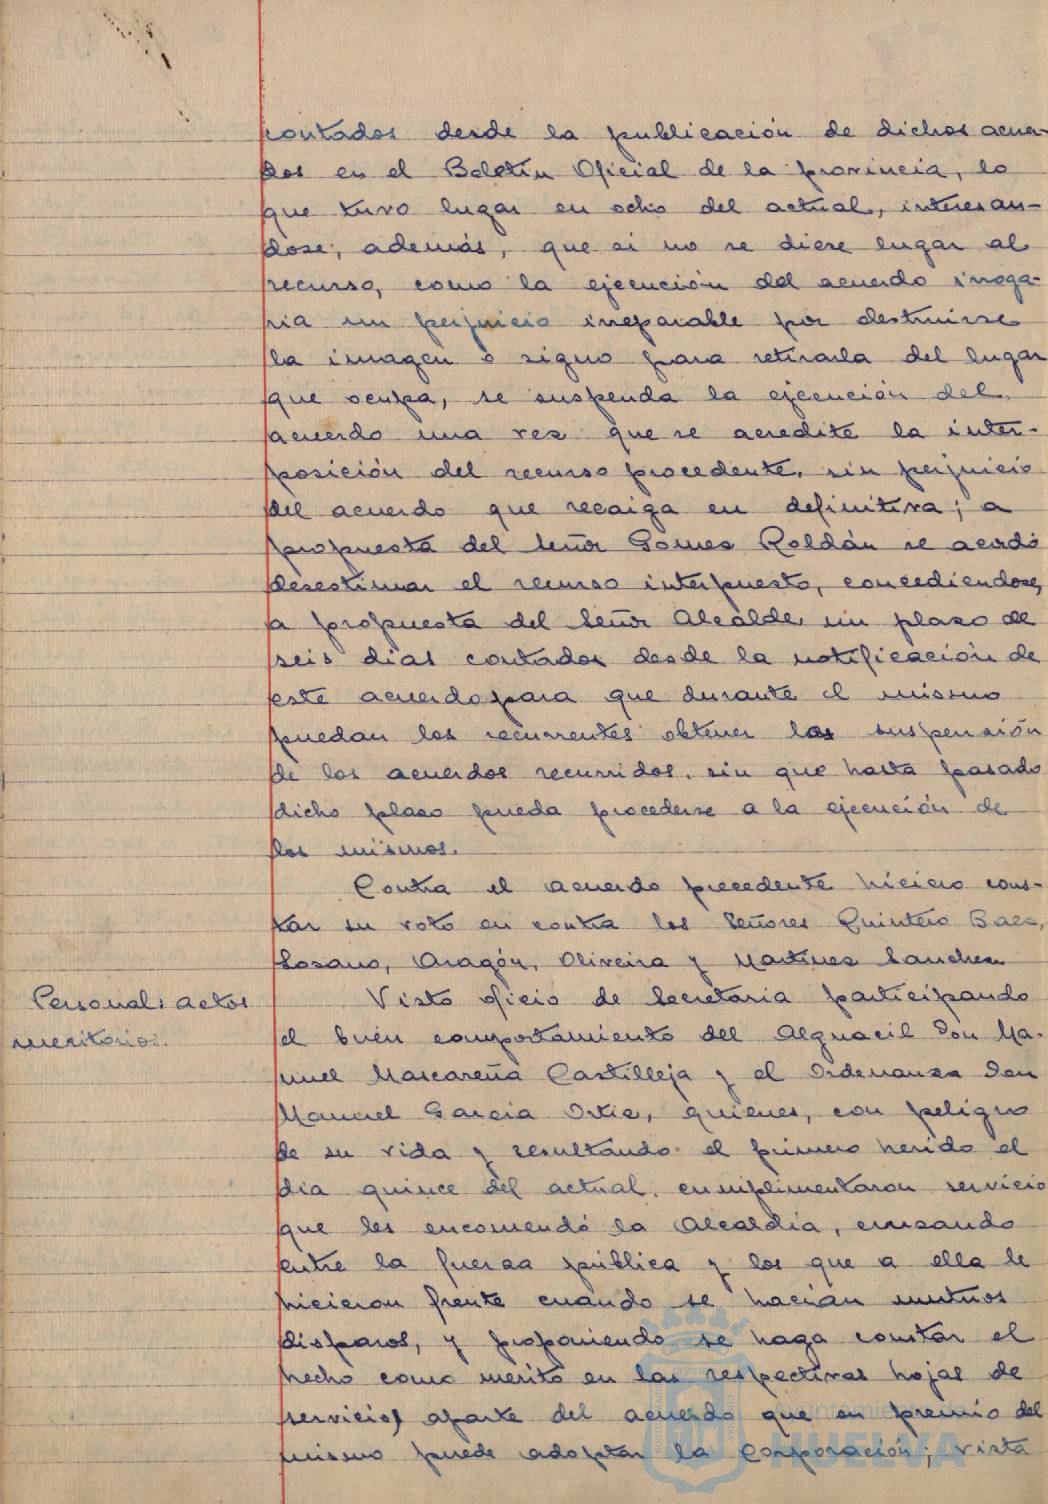 contados desde la publicación de dichos acuer-
dos en el Boletín Oficial de la provincia, lo
que tuvo lugar en ocho del actual, interesan-
dose, además, que si no se diere lugar al
recurso, como la ejecución del acuerdo irroga-
ria un perjuicio irreparable por destruirse
la imagen o signo para retirarla del lugar
que ocupa, se suspenda la ejecución del
acuerdo una vez que se acredite la inter-
posición del recurso procedente, sin perjuicio
del acuerdo que recaiga en definitiva; a
propuesta del Señor Gomez Roldán se acordó
desestimar el recurso interpuesto, concediendose,
a propuesta del Señor Alcalde, un plazo de
seis dias contados desde la notificación de
este acuerdo para que durante el mismo
puedan los recurrentes obtener la suspensión
de los acuerdos recurridos, sin que hasta pasado
dicho plazo pueda procederse a la ejecución de
los mismos.
Contra el acuerdo precedente hiciero cons-
tar su voto en contra los Señores Quintero Baez,
Lozano, Aragón, Oliveira y Martinez Sanchez
Personal: actos
meritorios.
Visto oficio de Secretaria participando
el buen comportamiento del Alguacil Don Ma-
nuel Mascareña Castilleja y el Ordenanza Don
Manuel Garcia Ortiz, quienes, con peligro
de su vida y resultando el primero herido el
dia quince del actual, cumplimentaron servicio
que les encomendó la Alcaldia, cruzando
entre la fuerza pública y los que a ella le
hicieron frente cuando se hacian mutuos
disparos, y proponiendo se haga constar el
hecho como merito en las respectivas hojas de
servicio, aparte del acuerdo que en premio del
mismo puede adoptar la Corporación; vista
Ayuntamiento de
HUELVA